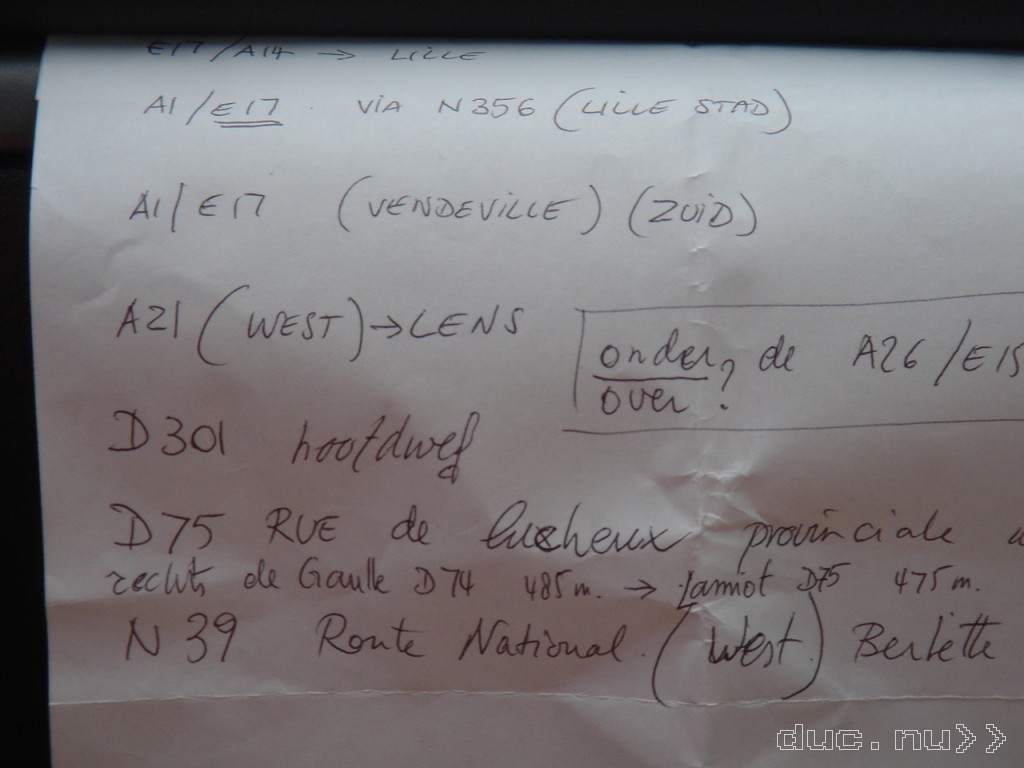 E17/A14 → LILLE
A1/E17 . via N356 (LILLE STAD)
A1/E17 (VENDEVILLE) (ZUID)
A21 (WEST) → LENS
onder, de A26/E15
over ?
D301 hoofdweg
D75 RUE de lucheux provinciale
rechts de Gaulle D74 485m. → Lamiot D75 475m.
N39 Route National. (West.) Berlette
duc.nu>>